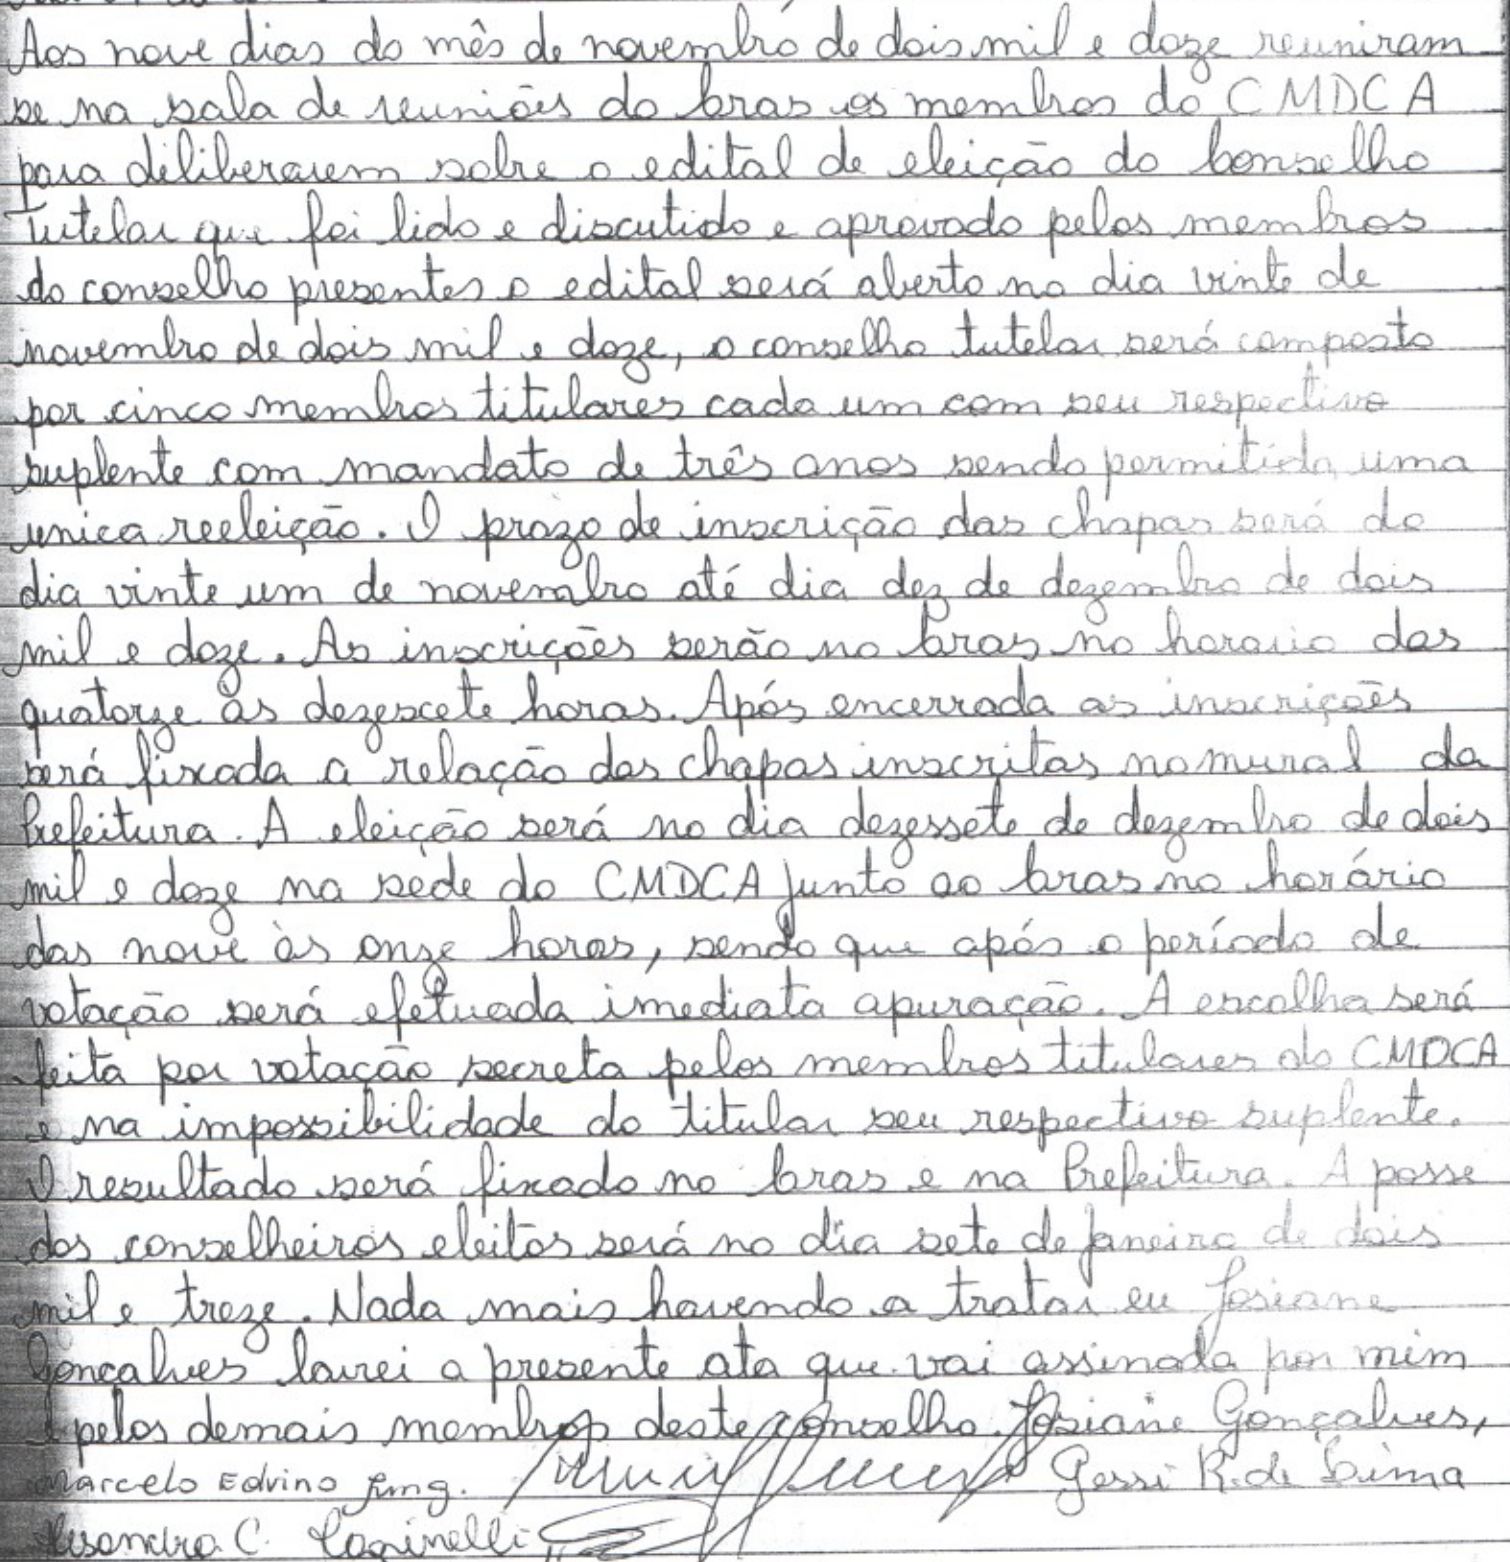 Aos nove dias do mês de novembro de dois mil e doze reuniram
se na sala de reuniões do Cras os membros do CMDCA
para deliberarem sobre o edital de eleição do Conselho
Tutelar que foi lido e discutido e aprovado pelos membros
do conselho presentes o edital será aberto no dia vinte de
novembro de dois mil e doze, o conselho tutelar será composto
por cinco membros titulares cada um com seu respectivo
suplente com mandato de três anos sendo permitida uma
unica reeleição. O prazo de inscrição das chapas será do
dia vinte um de novembro até dia dez de dezembro de dois
mil e doze. As inscrições serão no Cras no horario das
quatorze às dezescete horas. Após encerrada as inscrições
será fixada a relação das chapas inscritas no mural da
Prefeitura. A eleição será no dia dezessete de dezembro de dois
mil e doze na sede do CMDCA junto ao Cras no horário
das nove às onze horas, sendo que após o período de
votação será efetuada imediata apuração. A escolha será
feita por votação secreta pelos membros titulares do CMDCA
e na impossibilidade do titular seu respectivo suplente.
O resultado será fixado no Cras e na Prefeitura. A posse
dos conselheiros eleitos será no dia sete de janeiro de dois
mil e treze. Nada mais havendo a tratar eu Josiane
Gonçalves lavrei a presente ata que vai assinada por mim
e pelos demais membros deste conselho. Josiane Gonçalves,
Marcelo Edvino Jung. Gessi R. de Lima
C.